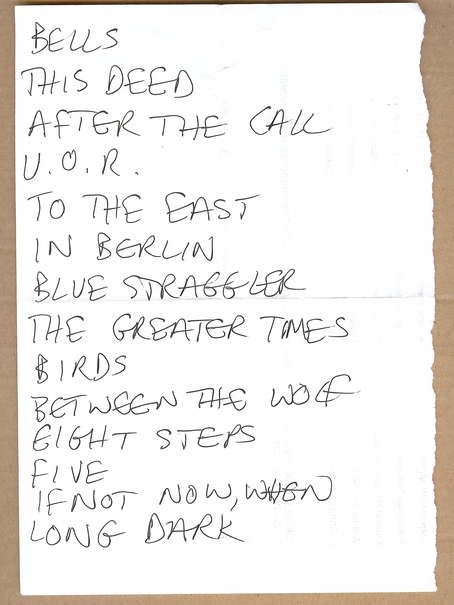 BELLS
THIS DEED
AFTER THE CALL
U.O.R.
TO THE EAST
IN BERLIN
BLUE STRAGGLER
THE GREATER TIMES
BIRDS
BETWEEN THE WOLF
EIGHT STEPS
FIVE
IF NOT NOW, WHEN
LONG DARK